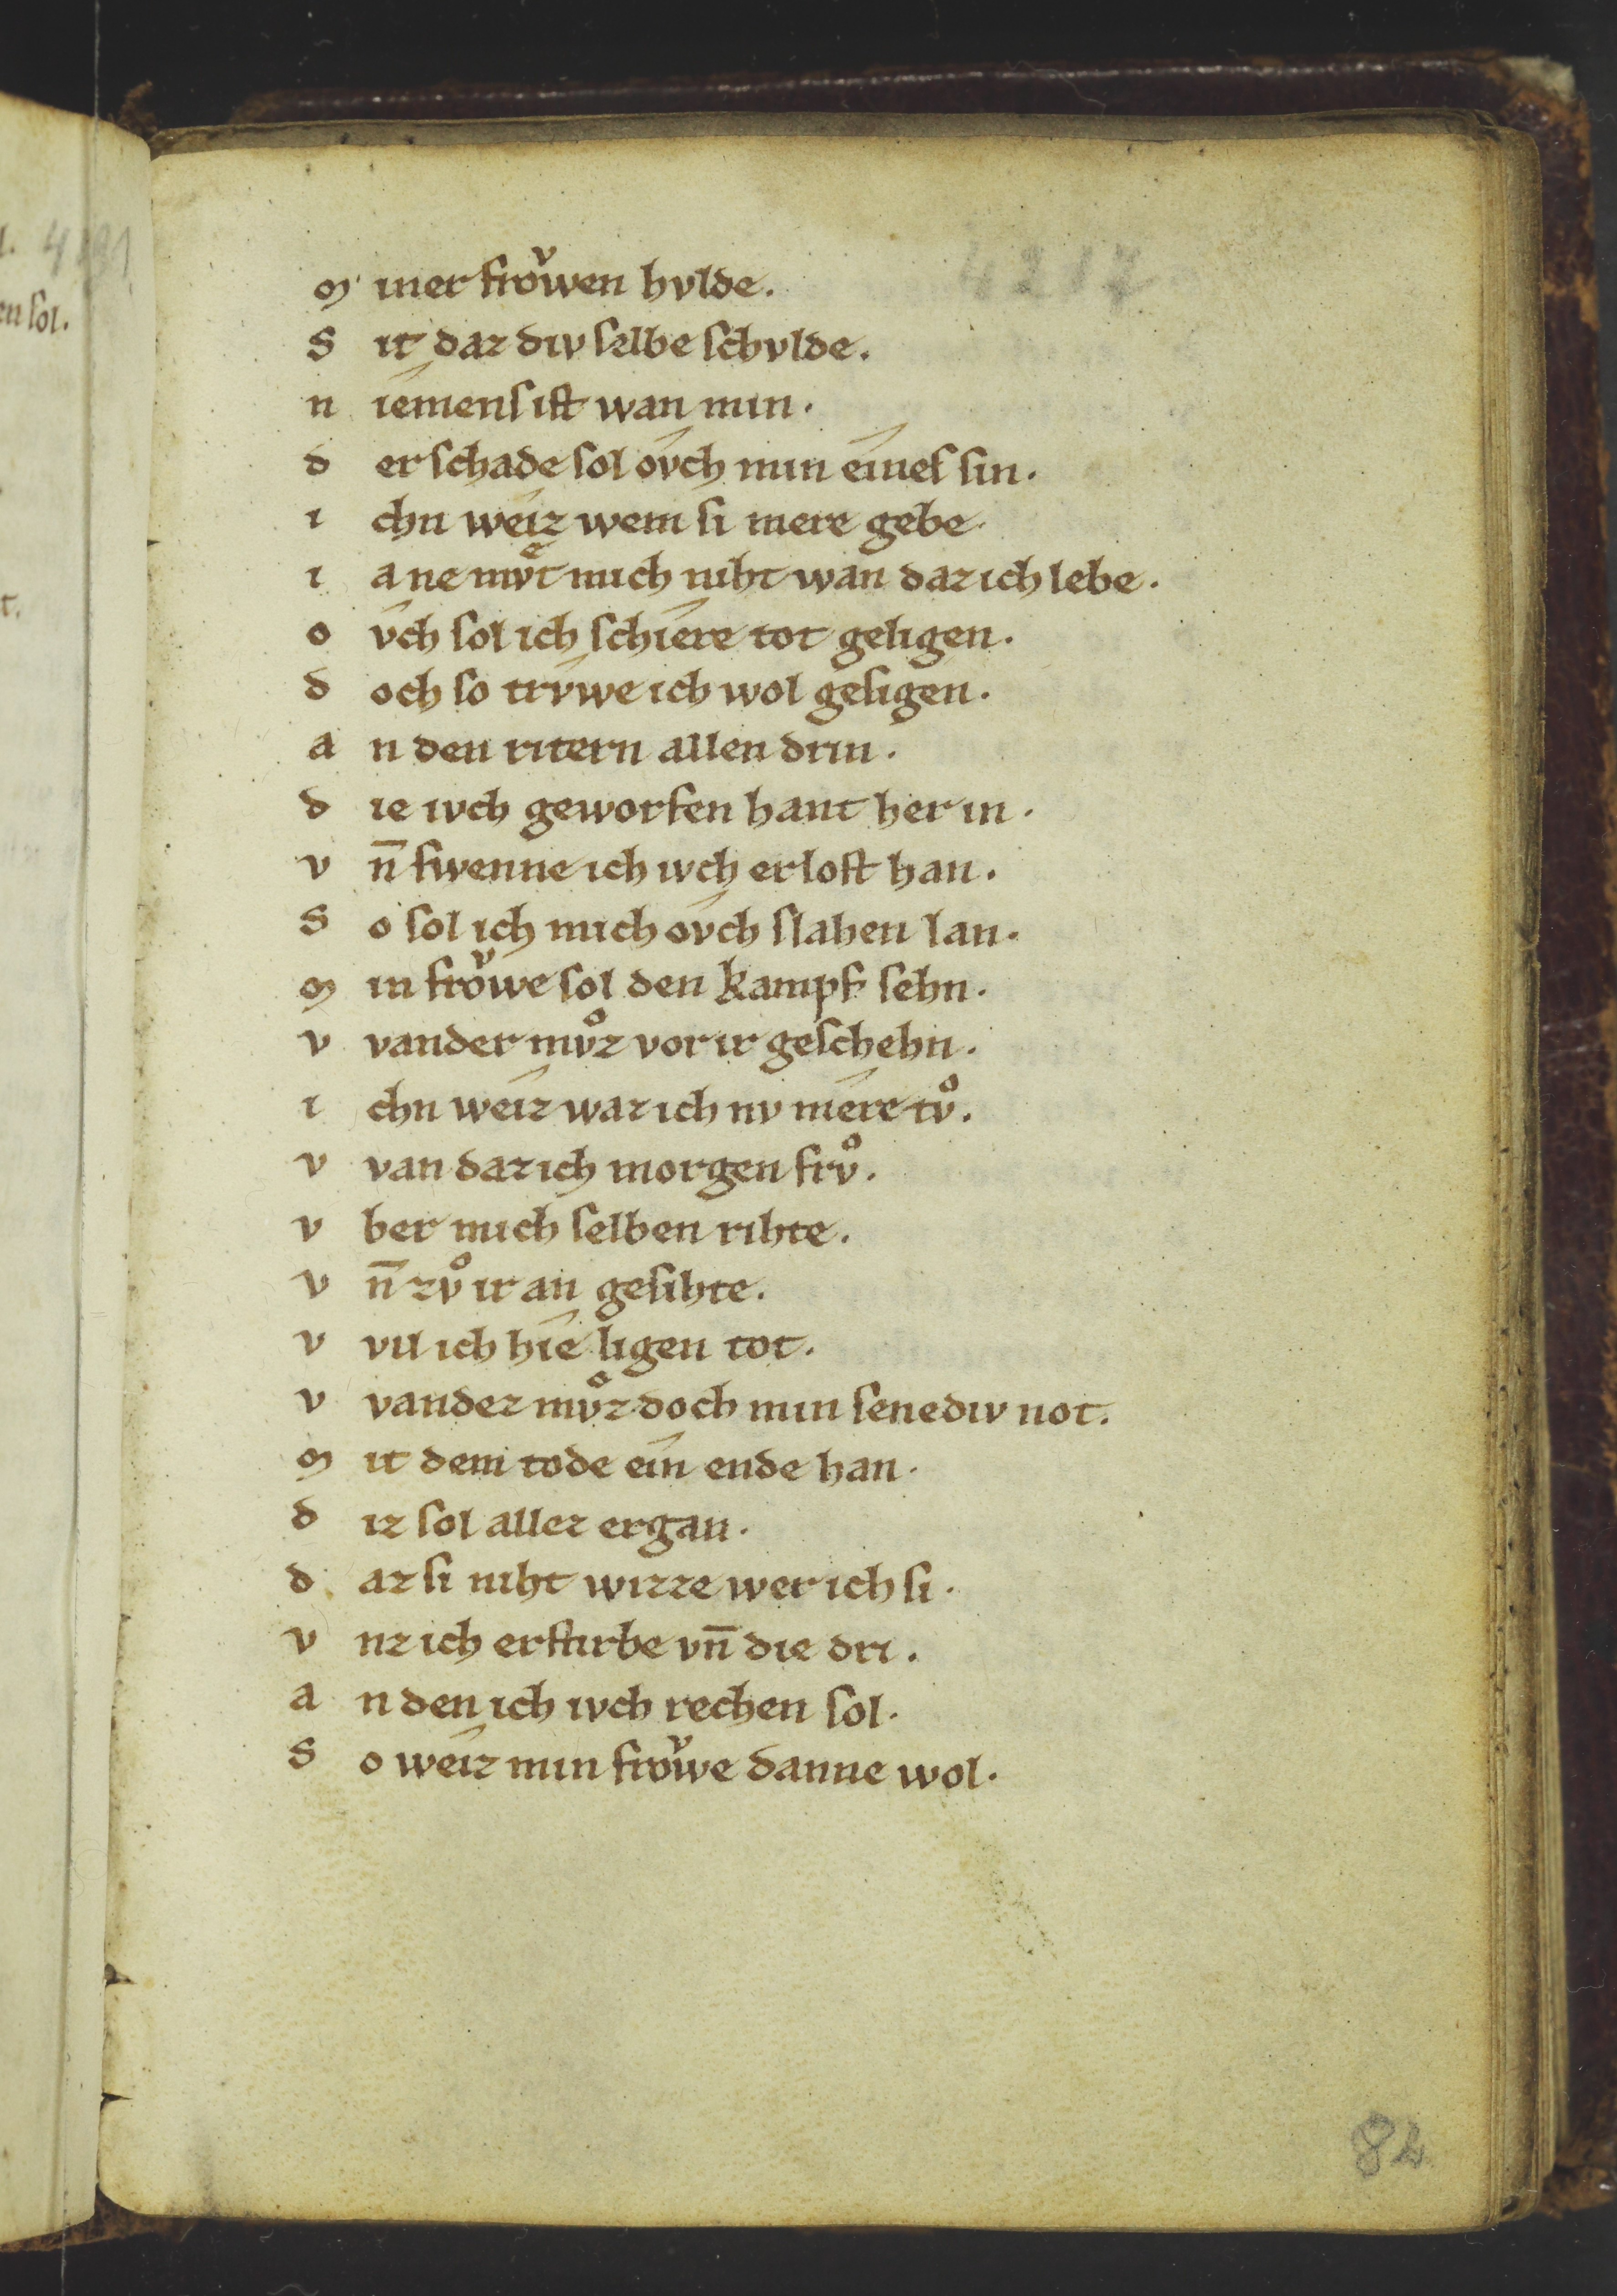 4217
m iner froͮwen hvlde.
S it daz div selbe schvlde.
n iemens ist wan min.
d er schade sol ovch min eines sin.
i chn weiz wem si mere gebe.
i a ne mvͤt mich niht wan daz ich lebe.
o vch sol ich schiere tot geligen.
d och so trvwe ich wol gesigen.
a n den ritern allen drin.
d ie ivch geworfen hant her in.
v n̄ swenne ich ivch erlost han.
S o sol ich mich ovch slahen lan.
m in froͮwe sol den kampf sehn.
v vander mvͦz vor ir geschehn.
i chn weiz waz ich nv mere tvͦ.
v van daz ich morgen frvͦ.
v ber mich selben rihte.
v n̄ zvͦ ir an gesihte.
v vil ich hie ligen tot.
v vandez mvͦz doch min senediv not.
m it dem tode ein ende han.
d iz sol allez ergan.
d az si niht wizze wer ich si.
v nz ich erstirbe vn̄ die dri.
a n den ich ivch rechen sol.
S o weiz min froͮwe danne wol.
82
en sol.
t.